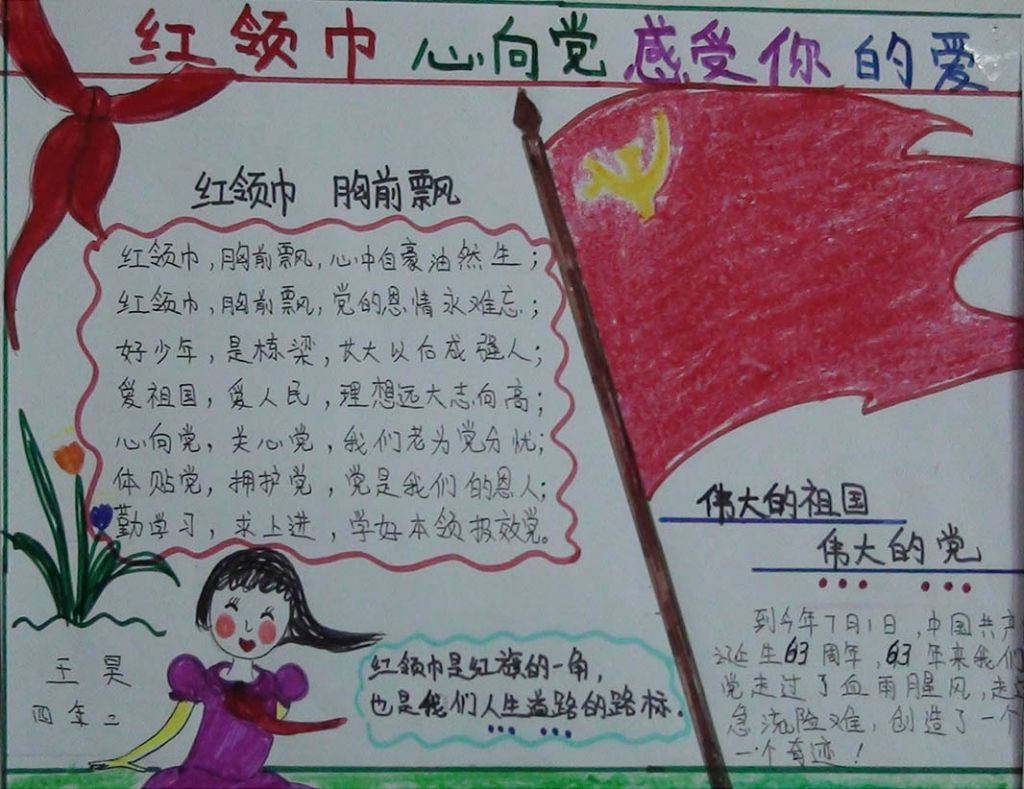 红领巾 心向党 感受你的爱
红领巾 胸前飘
红领巾,胸前飘,心中自豪油然生;
红领巾,胸前飘,党的恩情永难忘;
好少年,是栋梁,长大以后成强人;
爱祖国,爱人民,理想远大志向高;
心向党,关心党,我们老为党分忧;
体贴党,拥护党,党是我们的恩人;
勤学习,求上进,学好本领报效党。
王昊
四年二
红领巾是红旗的一角,
也是我们人生道路的路标.
伟大的祖国
伟大的党
到今年7月1日,中国共产
诞生63周年,63年来我们
党走过了血雨腥风,走过
急流险难,创造了一个
一个奇迹!